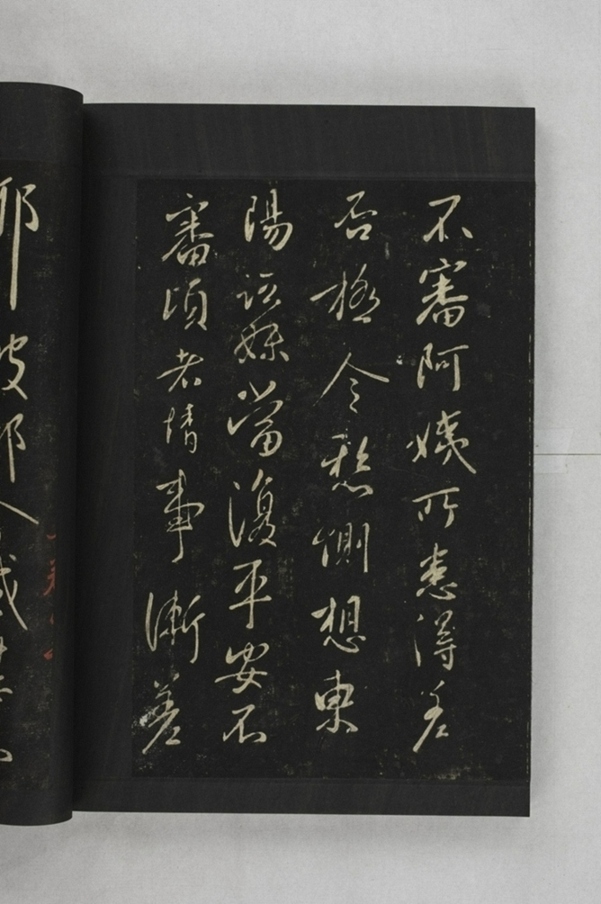 不審阿姨所患得差
否極令悬惻想東
陽諸妹當復平安不
審頃者情事漸差
耶
彼郡今